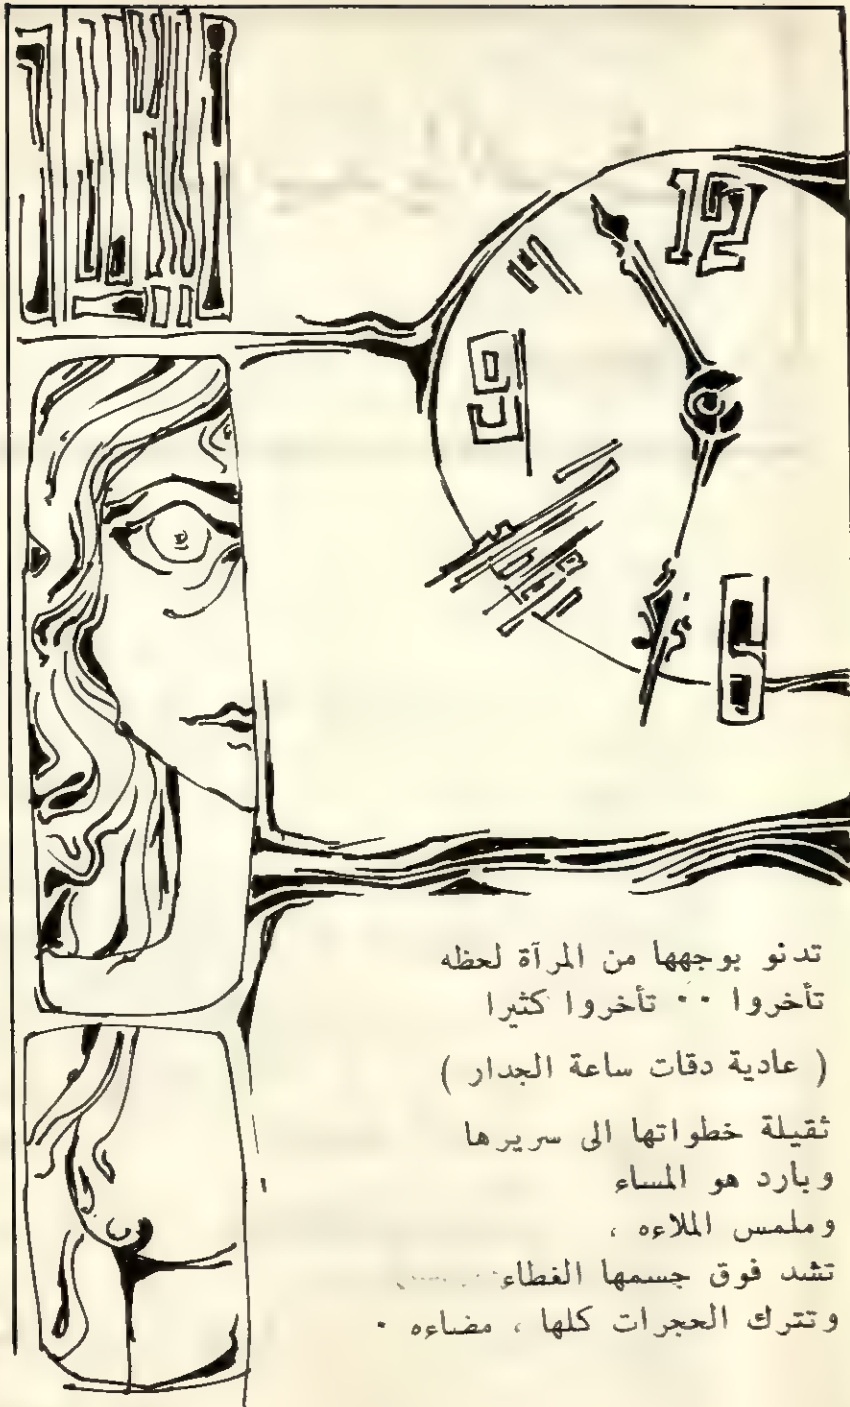 12
تدنو بوجهها من المرآة لحظه
تأخروا ٠٠ تأخروا كثيرا
( عادية دقات ساعة الجدار )
ثقيلة خطواتها الى سريرها
وبارد هو المساء
وملمس الملاءه ،
تشد فوق جسمها الغطاء
وتترك الحجرات كلها ، مضاءه ٠